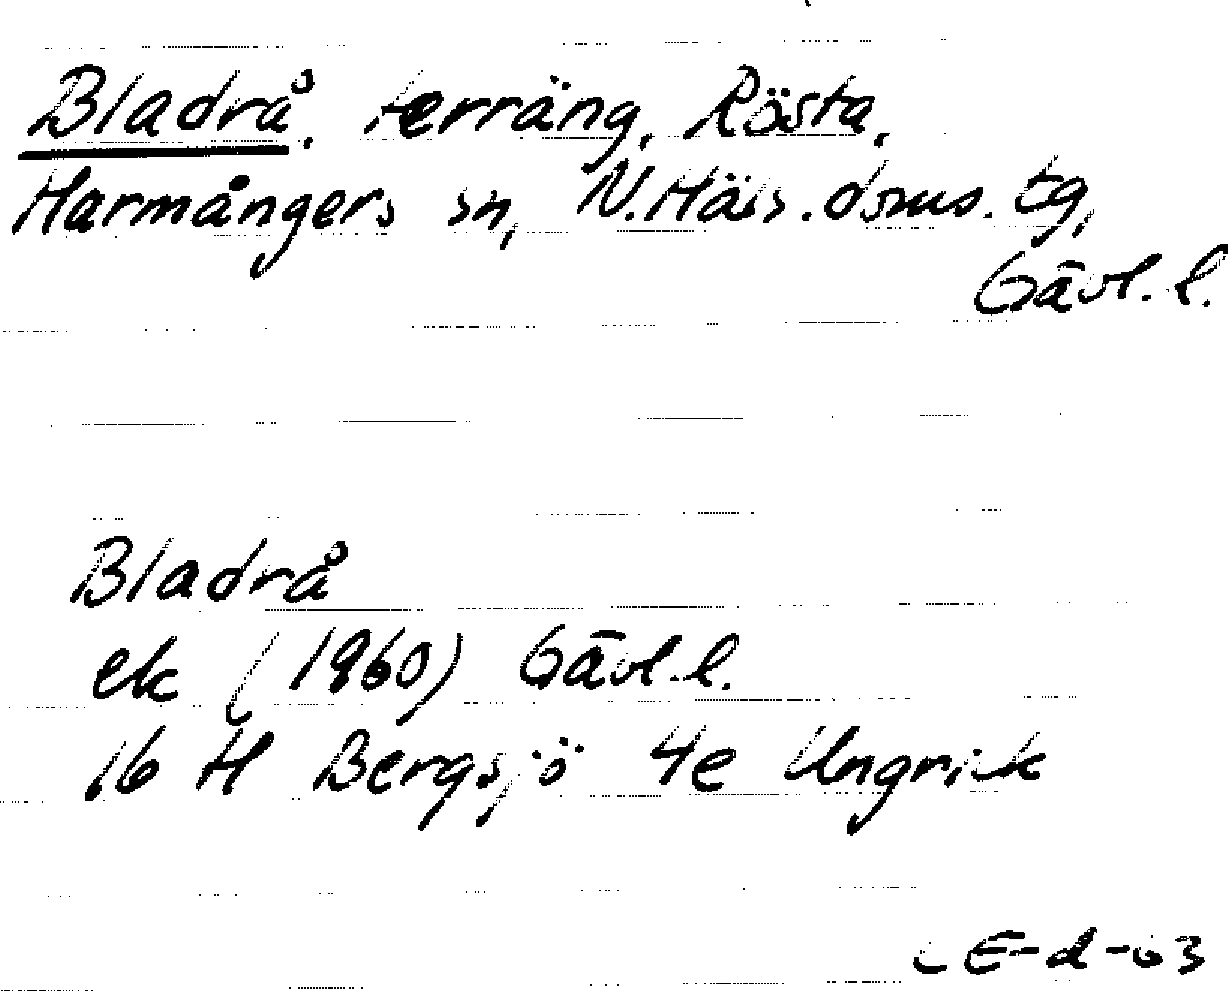 Bladrå, terräng, Rösta,
Harmångers sn, N. Häls. dsmus. tg,
Gävl. l.
Bladrå
ek (1960) Gävl. l.
16 H Bergsjö 4e Ungrick
CE-d-63